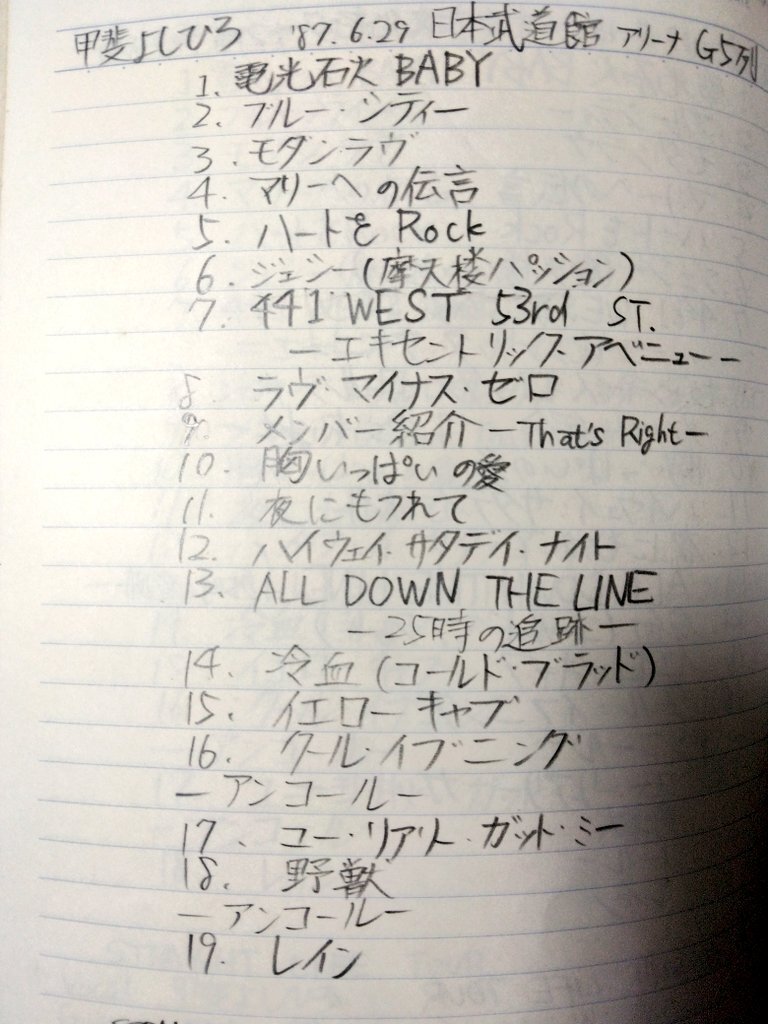 甲斐よしひろ '87.6.29 日本武道館 アリーナ G5列
1. 電光石火 BABY
2. ブルー・シティー
3. モダン・ラヴ
4. マリーへの伝言
5. ハートを Rock
6. ジェシー(摩天楼パッション)
7. 441 WEST 53rd ST.
—エキセントリック・アベニュー—
8. ラヴ・マイナス・ゼロ
9. メンバー紹介 —That's Right—
10. 胸いっぱいの愛
11. 夜にもつれて
12. ハイウェイ・サタデイ・ナイト
13. ALL DOWN THE LINE
—25時の追跡—
14. 冷血(コールド・ブラッド)
15. イエローキャブ
16. クール・イブニング
—アンコール—
17. ユー・リアリー・ガット・ミー
18. 野獣
—アンコール—
19. レイン